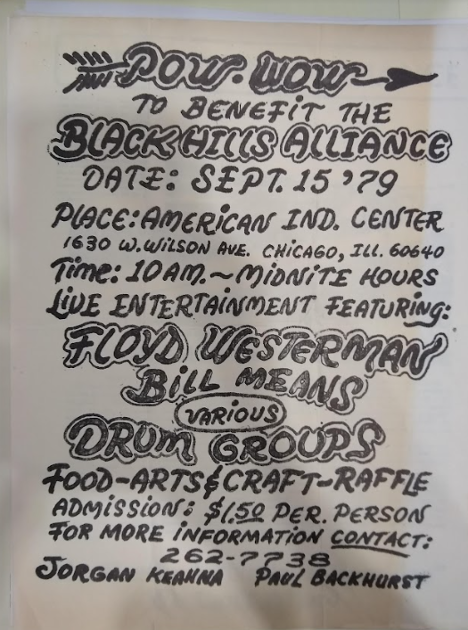 POW. WOW
TO BENEFIT THE
BLACK HILLS ALLIANCE
DATE: SEPT. 15 '79
PLACE: AMERICAN IND. CENTER
1630 W. WILSON AVE. CHICAGO, ILL. 60640
TIME: 10 AM. ~ MIDNITE HOURS
LIVE ENTERTAINMENT FEATURING:
FLOYD WESTERMAN
BILL MEANS
VARIOUS
DRUM GROUPS
FOOD-ARTS & CRAFT-RAFFLE
ADMISSION: $1.50 PER. PERSON
FOR MORE INFORMATION CONTACT:
262-7738
JORGAN KEAHNA PAUL BACKHURST